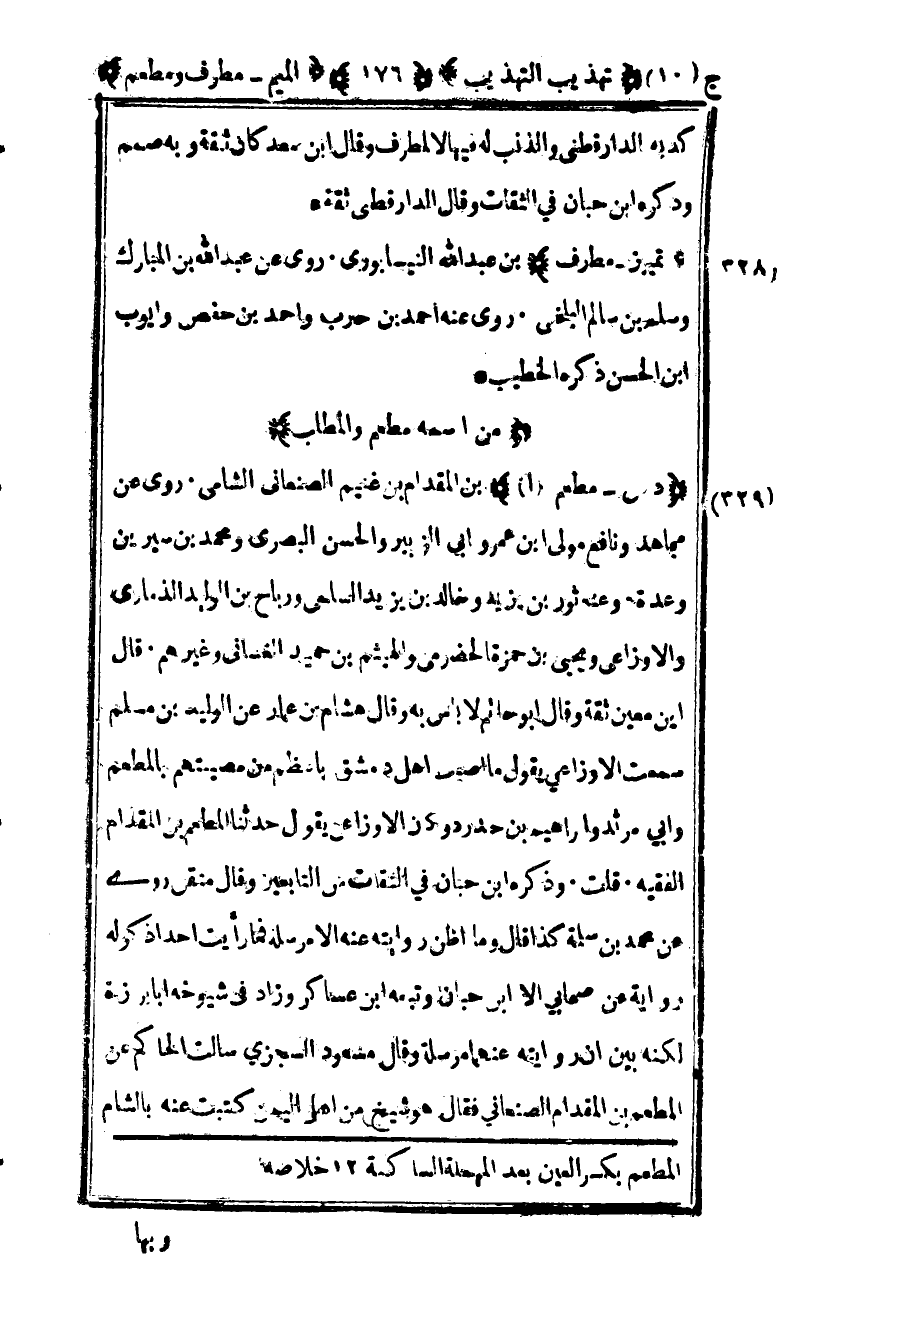 ج (١٠) ﴿ تهذيب التهذيب ﴾ ﴿ ١٧٦ ﴾ ﴿ الميم ـ مطرف ومطعم ﴾
الدارقطنى والذنب له فيها لا لمطرف وقال ابن سعد كان ثقة وبه صمم
وذكره ابن حبان في الثقات وقال الدارقطى ثقة
تمييز ـ مطرف ﴾ بن عبدالله النيسابورى ٠ روى عن عبدالله بن المبارك
(٣٢٨
وسلم بن سالم البلخى ٠ روى عنه احمد بن حرب واحمد بن حفص وايوب
ابن الحسن ذكره الخطيب
﴿ من اسمه مطعم والمطلب ﴾
﴿ د س ـ مطعم (١) ﴾ بن المقدام بن غنيم الصنعانى الشامى ٠ روى عن
(٣٢٩)
مجاهد ونافع مولى ابن عمر وابي الزبير والحسن البصرى ومحمد بن سيرين
وعدة ٠ وعنه ثور بن يزيد وخالد بن يزيد السلمى ورباح بن الوليد الذمارى
والاوزاعى ويحيى بن حمزة الحضرمى والهيثم بن حميد الغسانى وغيرهم ٠ قال
ابن معين ثقة وقال ابو حاتم لا باس به وقال هشام بن عمار عن الوليد بن مسلم
سمعت الاوزاعي يقول ما اصيب اهل دمشق باعظم من مصيبتهم بالمطعم
وابي مرثد وابراهيم بن حدرد وكان الاوزاعى يقول حدثنا المطعم بن المقدام
الفقيه ٠ قلت ٠ وذكره ابن حبان في الثقات من التابعين وقال متقن روے
عن محمد بن سلمة كذا قال وما اظن روايته عنه الا مرسلة فما رأيت احدا ذكر له
رواية عن صحابي الا ابن حبان وتبعه ابن عساكر وزاد فى شيوخه ابابرزة
لكنه بين ان روايته عنهما مرسلة وقال مسعود السجزي سالت الحاكم عن
المطعم بن المقدام الصنعاني فقال هو شيخ من اهل اليمن كتبت عنه بالشام
المطعم بكسر العين بعد المهملة الساكنة ١٢ خلاصه
وبها